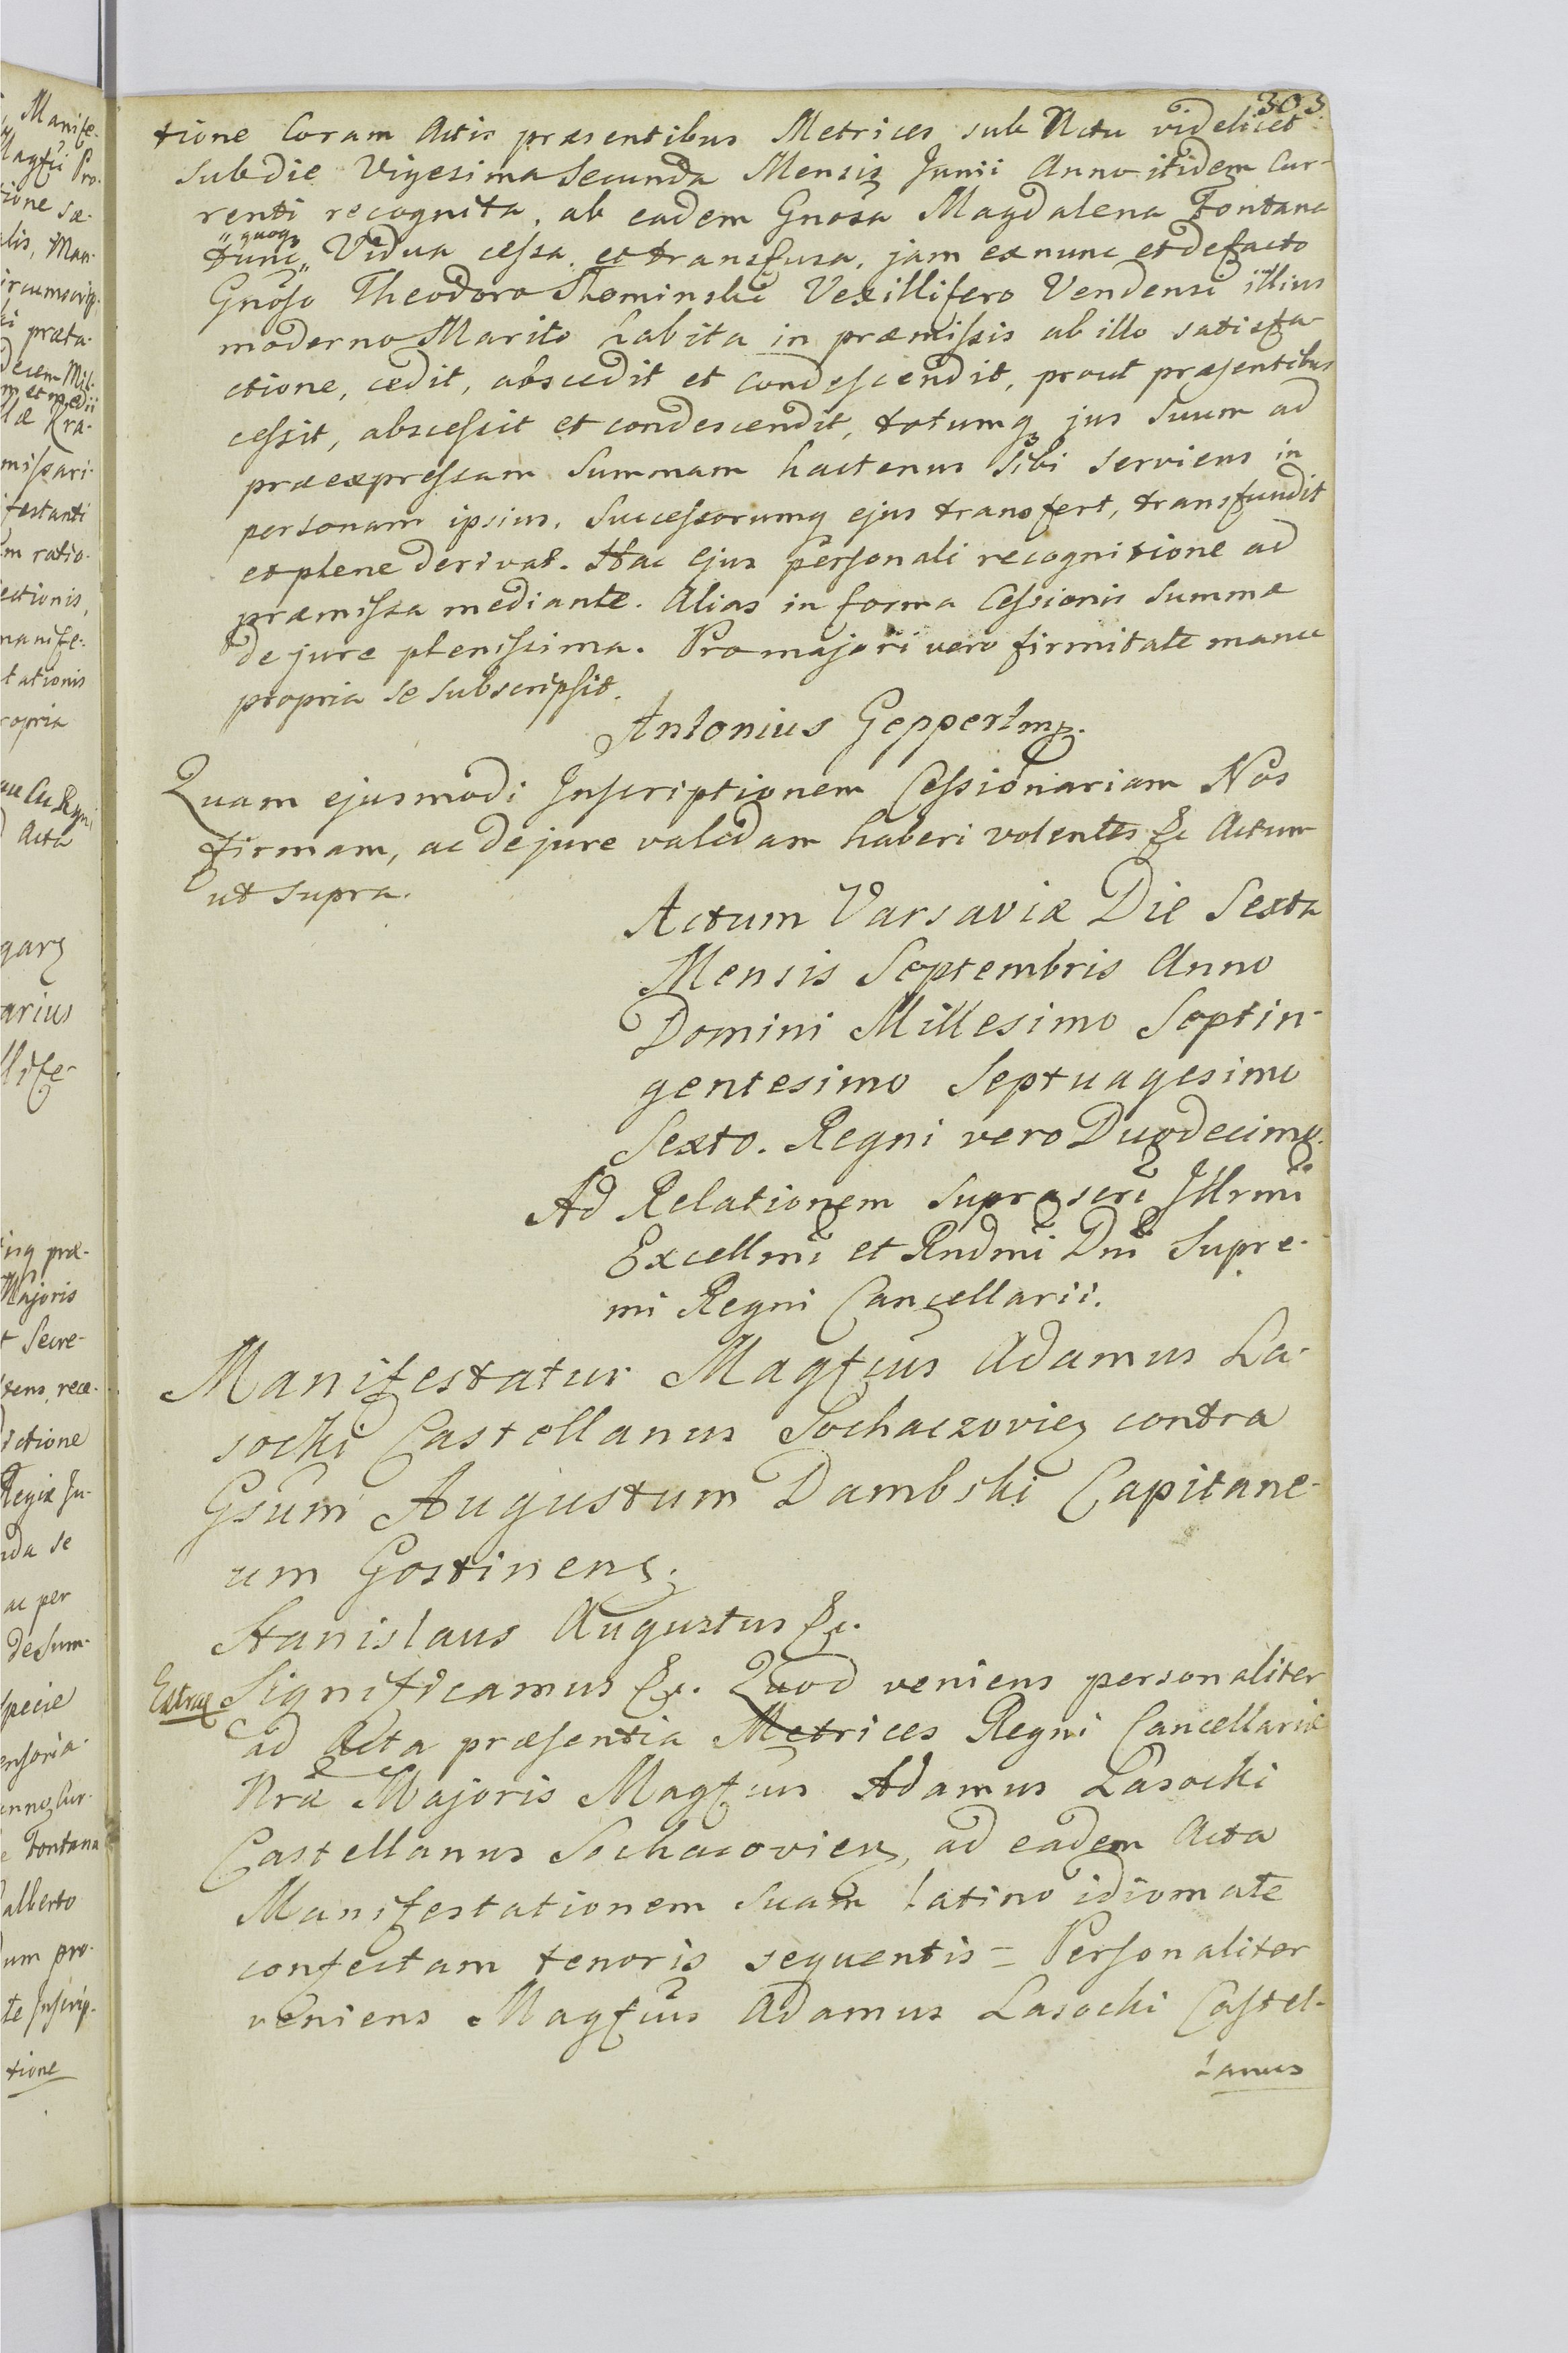 303
tione Coram Actis præsentibus Metrices sub Actu videlicet
sub die Vigesima Secunda Mensis Junii Anno itidem Cur-
renti recognita, ab eadem Gnosa Magdalena Fontana
"quoq
tunc" Vidua cessa et transfusa, jam ex nunc et de facto
Gnoso Theodoro Slominski Vexillifero Vendensi illius
moderno Marito habita in præmissis ab illo satisfa-
ctione, cedit, abscedit et condescendit, prout præsentibus
cessit, abscessit et condescendit, totumq jus suum ad
præexpressam Summam hactenus sibi serviens in
personam ipsius, Successorumq ejus transfert, transfundit
et plene derivat. Hac ejus personali recognitione ad
præmissa mediante. Alias in forma Cessionis Summæ
de jure plenissima. Pro majori vero firmitate manu
propria se subscripsit.
Antonius Geppert mp.
Quam ejusmodi Inscriptionem Cessionariam Nos
firmam, ac de jure validam haberi volentes &c Actum
ut supra.
Actum Varsaviæ Die Sexta
Mensis Septembris Anno
Domini Millesimo Septin-
gentesimo Septuagesimo
Sexto. Regni vero Duodecimo.
Ad Relationem suprascri Illrmi
Excellmi et Rndmi Dni Supre-
mi Regni Cancellarii.
Manifestatur Magfcus Adamus La-
socki Castellanus Sochaczovien contra
Gsum Augustum Dambski Capitane-
um Gostinens.
Stanislaus Augustus &c.
Extrax Significamus &c. Quod veniens personaliter
ad Acta præsentia Metrices Regni Cancellariæ
Nræ Majoris Magfcus Adamus Lasocki
Castellanus Sochacovien, ad eadem Acta
Manifestationem suam latino idiomate
confectam tenoris sequentis = Personaliter
veniens Magfcus Adamus Lasocki Castel-
lanus